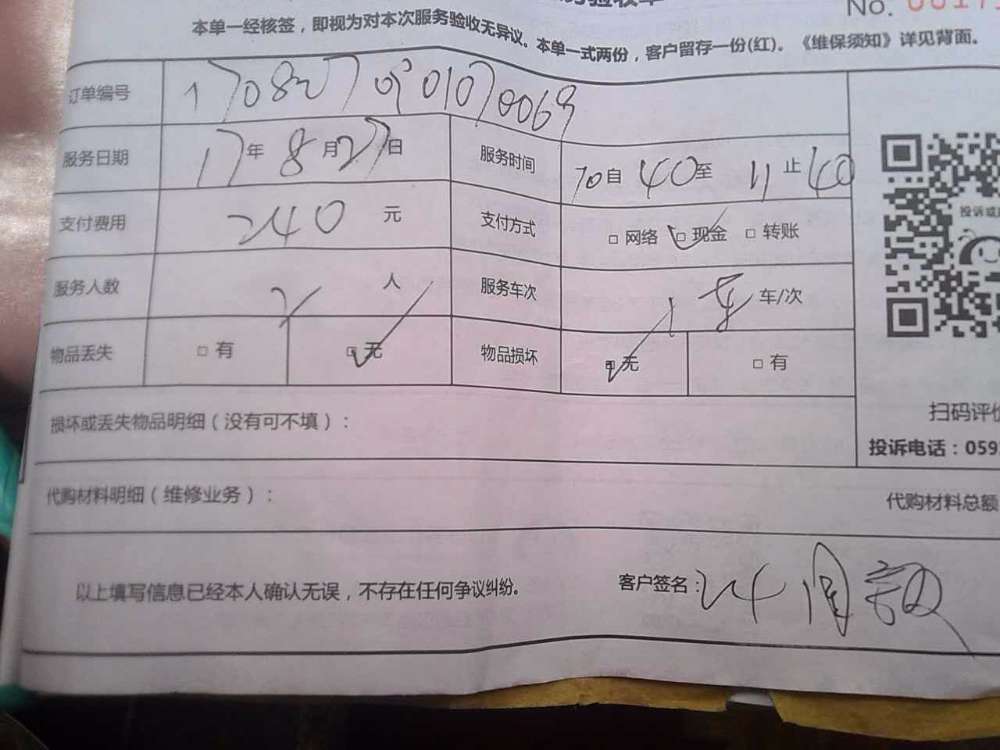 No.
本单一经核签，即视为对本次服务验收无异议。本单一式两份，客户留存一份(红)。《维保须知》详见背面。
订单编号 1708270901070069
服务日期 17年8月27日 服务时间 10自40至11止40
支付费用 240元 支付方式 □网络 □现金 □转账
服务人数 2人 服务车次 1车车/次
物品丢失 □有 □无 物品损坏 □无 □有
损坏或丢失物品明细（没有可不填）：
扫码评价
投诉电话：059
代购材料明细（维修业务）： 代购材料总额
以上填写信息已经本人确认无误，不存在任何争议纠纷。 客户签名：